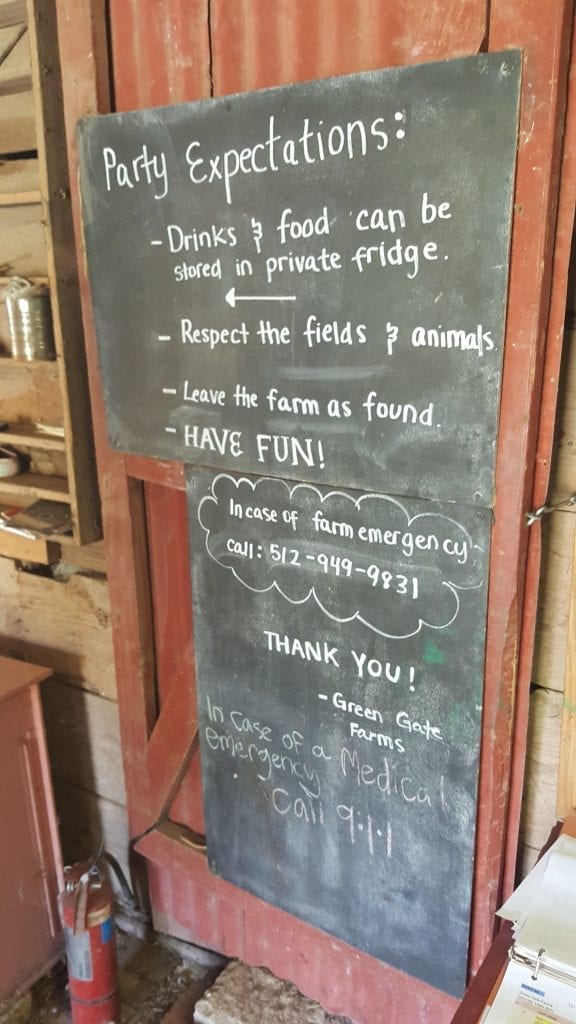 Party Expectations:
- Drinks & food can be
stored in private fridge.
←
- Respect the fields & animals.
- Leave the farm as found.
- HAVE FUN!
In case of farm emergency
call: 512-949-9831
THANK YOU!
- Green Gate
Farms
In case of a Medical
emergency
Call 9.1.1